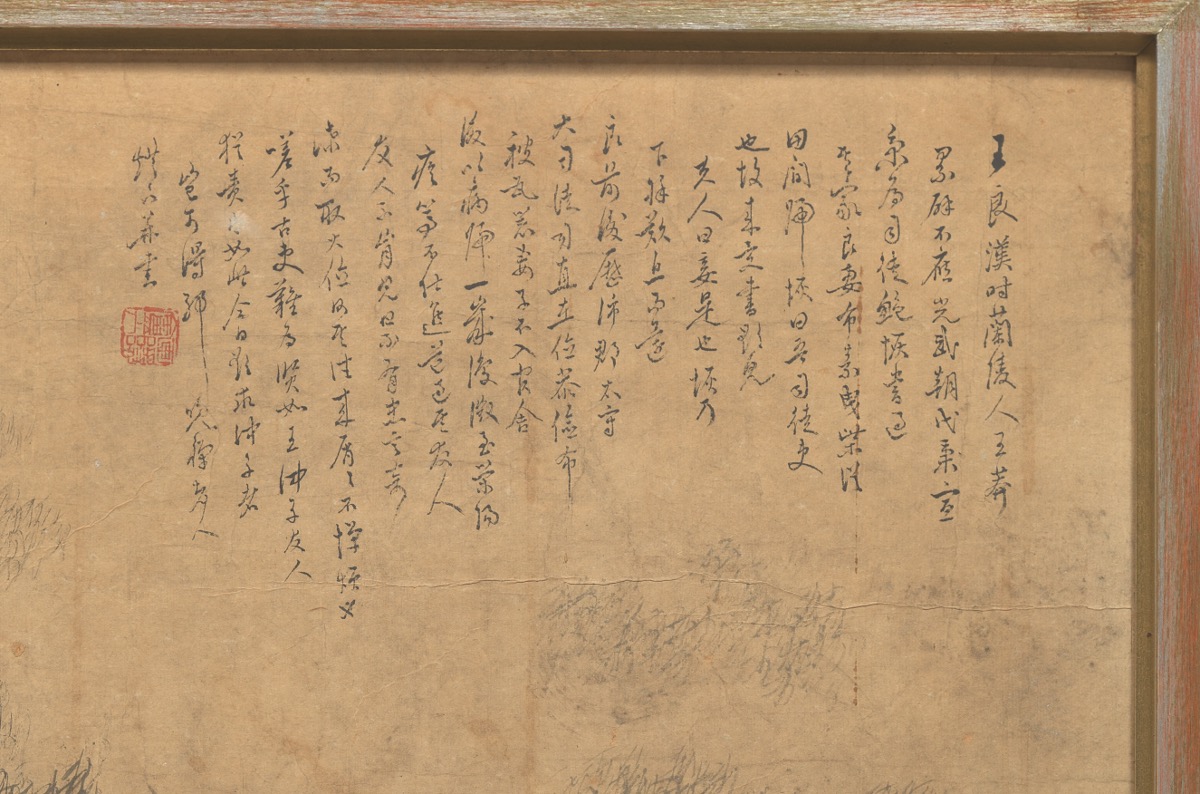 王良漢時蘭陵人王莽
累辟不應光武朝代秉宣
為司徒鮑恢嘗過
其家良妻布素曳柴從
田間歸恢曰吾司徒史
也故來受書欲見
夫人曰妾是也恢乃
下拜歎息而還
良前後歷沛郡太守
大司徒司直在位恭儉布
被瓦器妻子不入官舍
後以病歸一歲復徵至滎陽
疾篤不任進道過其友人
友人不肯見曰不有忠言奇
謀而取大位何其往來屑〻不憚煩也
嗟乎古史難為賢如王仲子友人
猶責如此今日欲求仲子者
豈可得耶 老人
並書